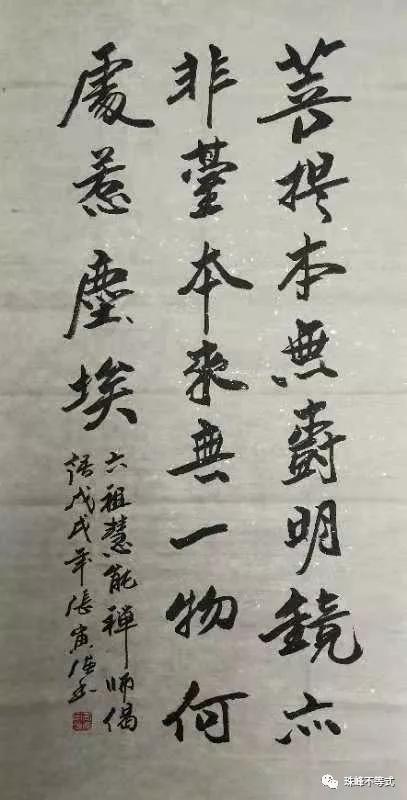 菩提本無樹明鏡亦
非臺本来無一物何
處惹塵埃
六祖慧能禅师偈
语戊戌年张寅
珠峰不等式